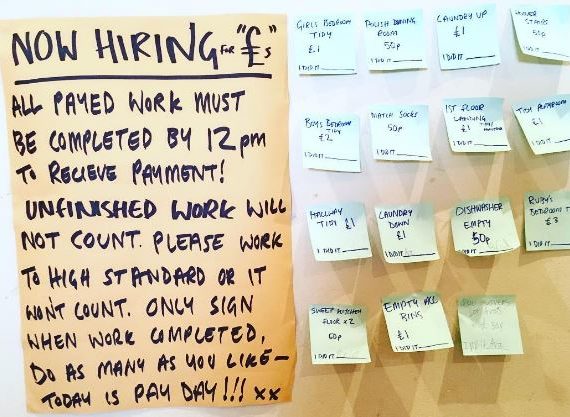 NOW HIRING FOR "£"s
ALL PAYED WORK MUST
BE COMPLETED BY 12pm
TO RECIEVE PAYMENT!
UNFINISHED WORK WILL
NOT COUNT. PLEASE WORK
TO HIGH STANDARD OR IT
WON'T COUNT. ONLY SIGN
WHEN WORK COMPLETED,
DO AS MANY AS YOU LIKE—
TODAY IS PAY DAY!!! xx
GIRLS BEDROOM
TIDY
£1
I DID IT
POLISH DINING
ROOM
50p
I DID IT
LAUNDRY UP
£1
I DID IT
STAIRS
50p
I DID IT
BOYS BEDROOM
TIDY
£2
I DID IT
MATCH SOCKS
50p
I DID IT
1ST FLOOR
LANDING
£1 TIDY
I DID IT
TIDY
£1
I DID IT
HALLWAY
TIDY £1
I DID IT
LAUNDRY
DOWN
£1
I DID IT
DISHWASHER
EMPTY
50p
I DID IT
RUBY'S
BEDROOM T
£3
I DID IT
SWEEP KITCHEN
FLOOR x 2
60p
I DID IT
EMPTY ALL
BINS
£1
I DID IT